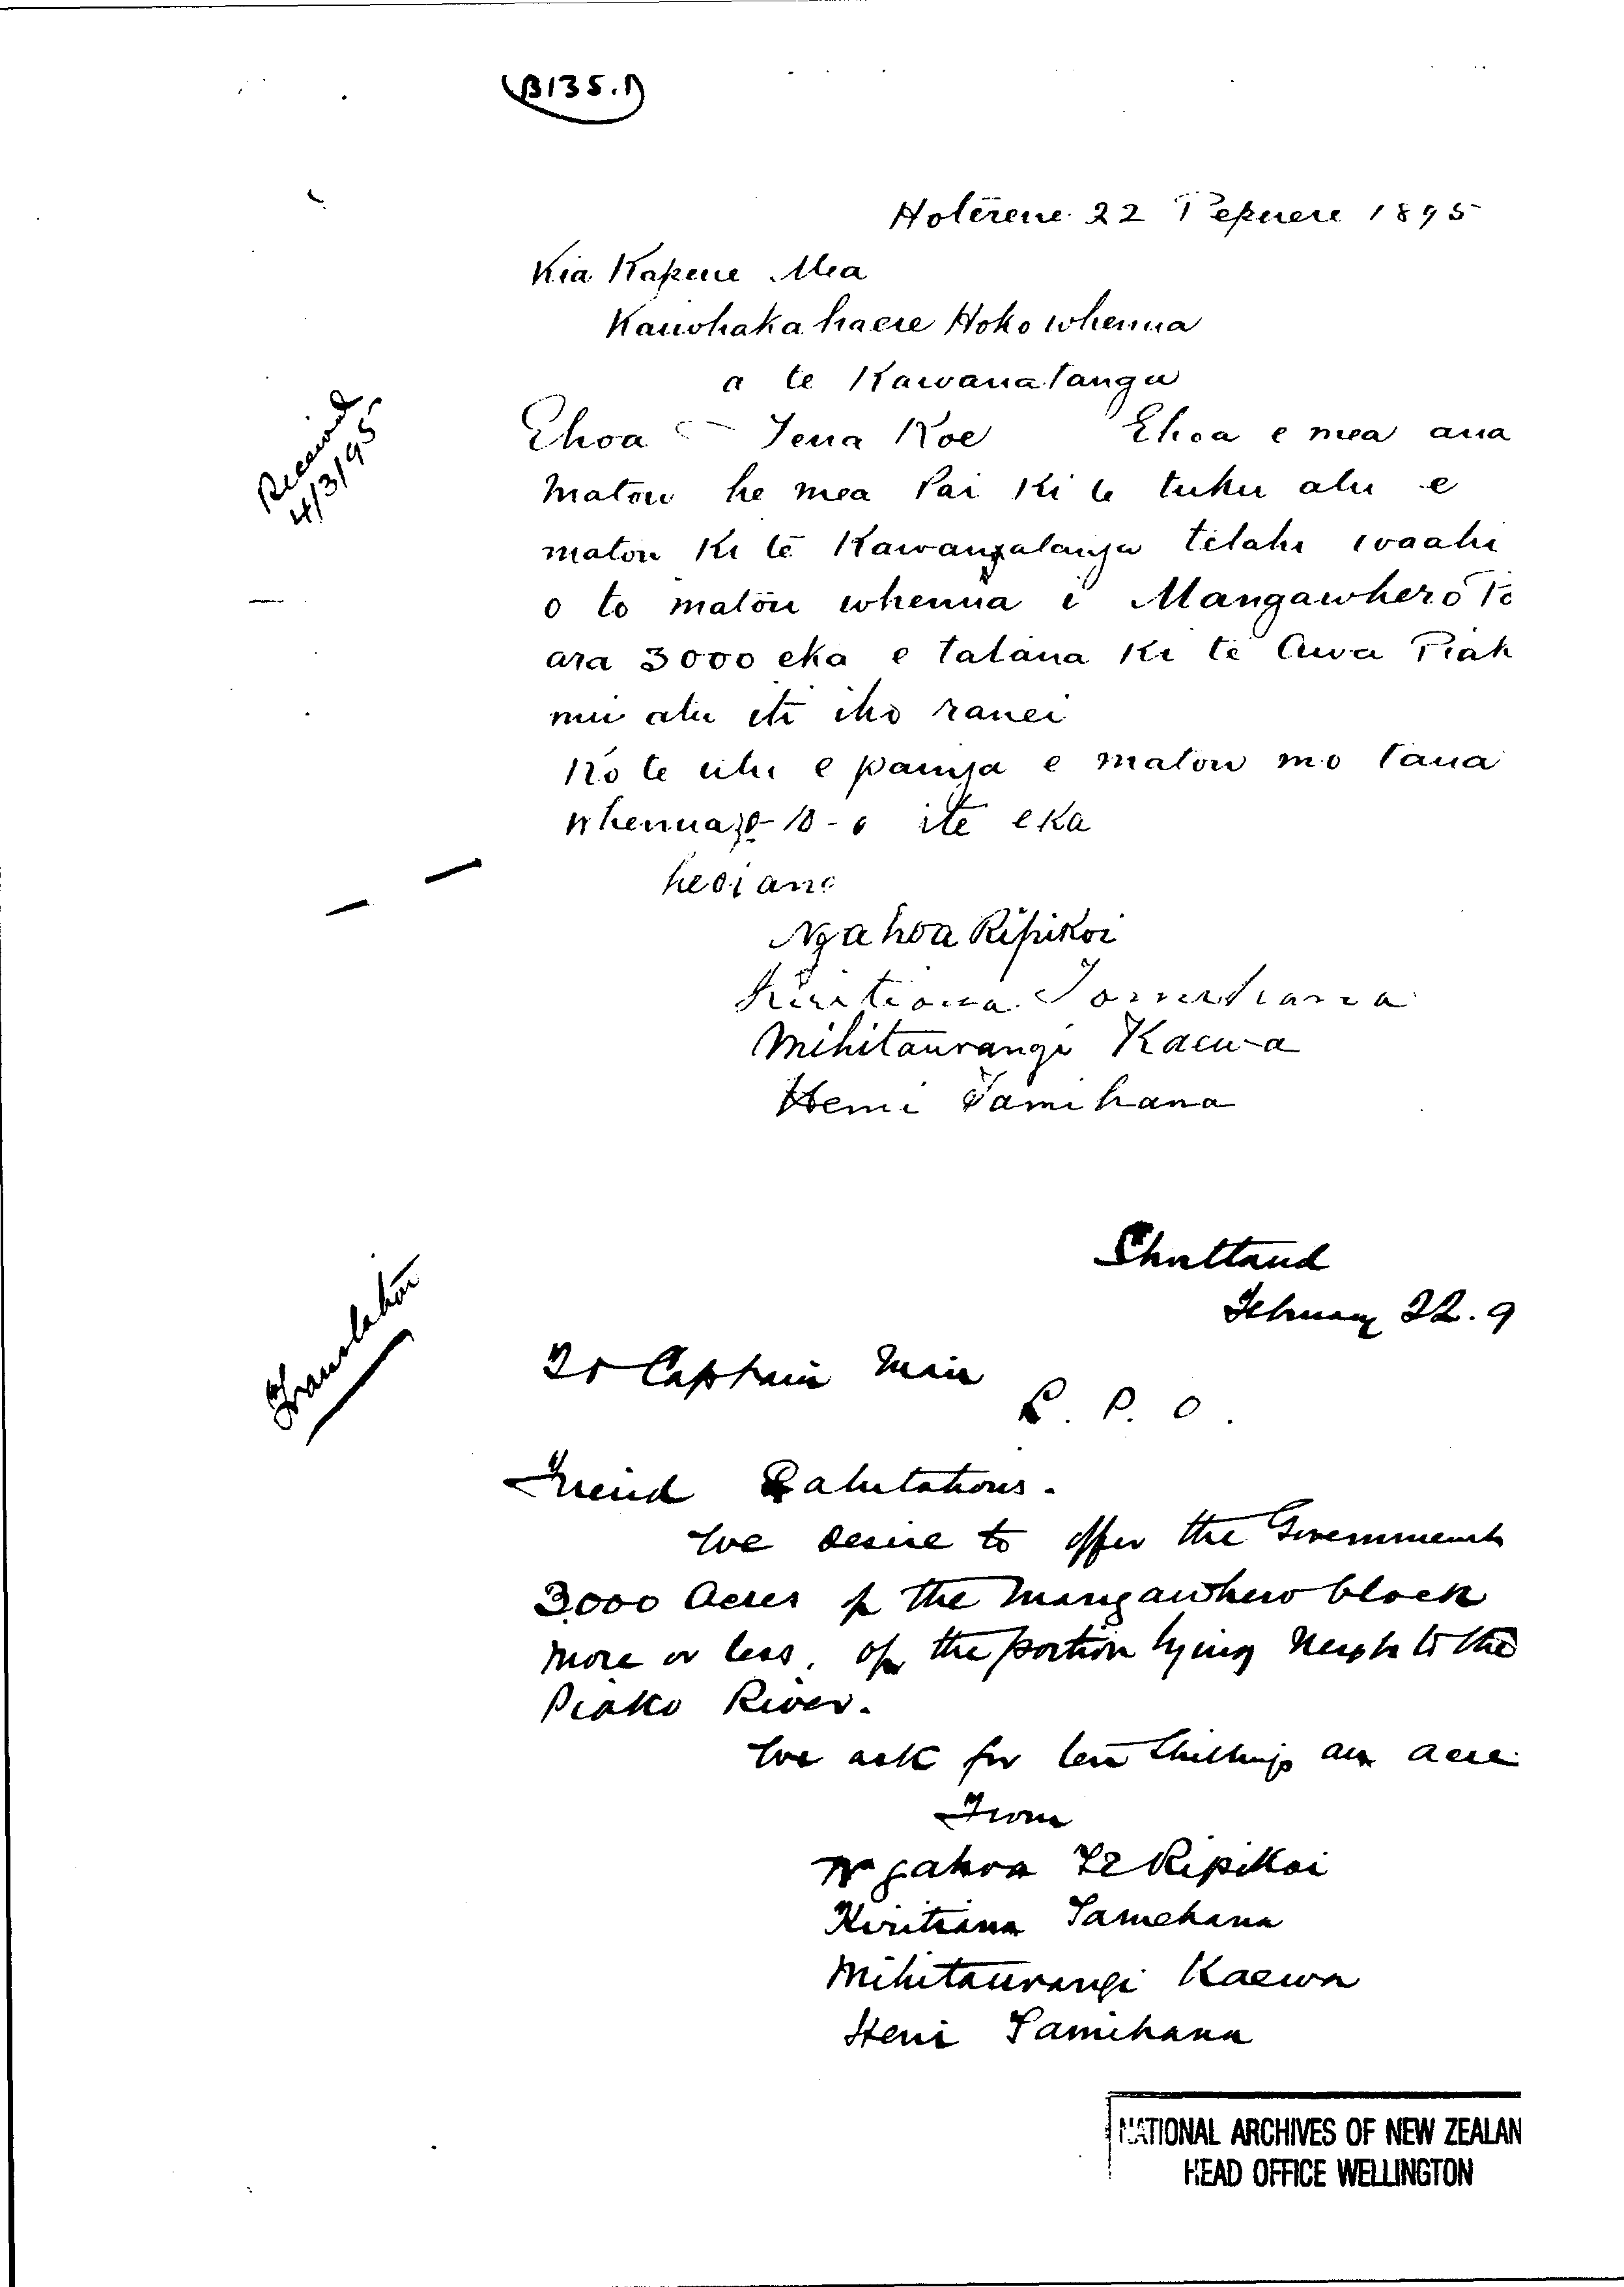 (B135.1)
Hoterene 22 Pepuere 1895
Kia Kapene Mea
Kaiwhakahaere Hoko whenua
a te Kawanatanga
Ehoa Tena Koe Ehoa e mea ana
matou he mea Pai Ki te tuku atu e
matou Ki te Kawanatanga tetahi waahi
o to matou whenua i Mangawhero
ara 3000 eka e tatana Ki te Awa Piak
nui atu iti iho ranei
Ko te utu e painga e matou mo taua
whenua 0-10-0 ite eka
heoi ano
Ngahoa Ripikoi
Kiritiana Tamehana
Mihitaurangi Kaewa
Heni Tamihana
Received
4/3/95
Translation
Shortland
February 22. 9
To Captain Mair
L. P. O.
Friend Salutations.
We desire to offer the Government
3000 Acres of the Mangawhero block
more or less, of the portion lying next to the
Piako River.
We ask for ten shillings an acre
From
Ngahoa Te Ripikoi
Kiritiana Tamehana
Mihitaurangi Kaewa
Heni Tamihana
NATIONAL ARCHIVES OF NEW ZEALAN
HEAD OFFICE WELLINGTON